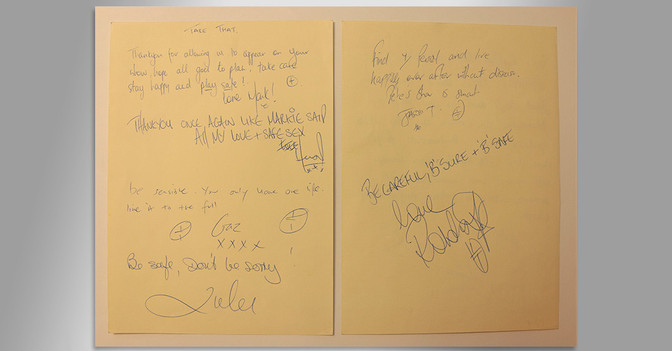 TAKE THAT
Thankyou for allowing us to appear on your
show, hope all goes to plan, take care
stay happy and play safe!
Love Mark!
THANKYOU ONCE AGAIN LIKE MARKIE SAID
All MY LOVE + SAFE SEX
be sensible. You only have one life
live it to the full
Gaz
xxxx
Be safe, Don't be sorry
Lulu
Find y and live
happy ever after without disease.
BE CAREFUL, 'B' SURE + 'B' SAFE
Love